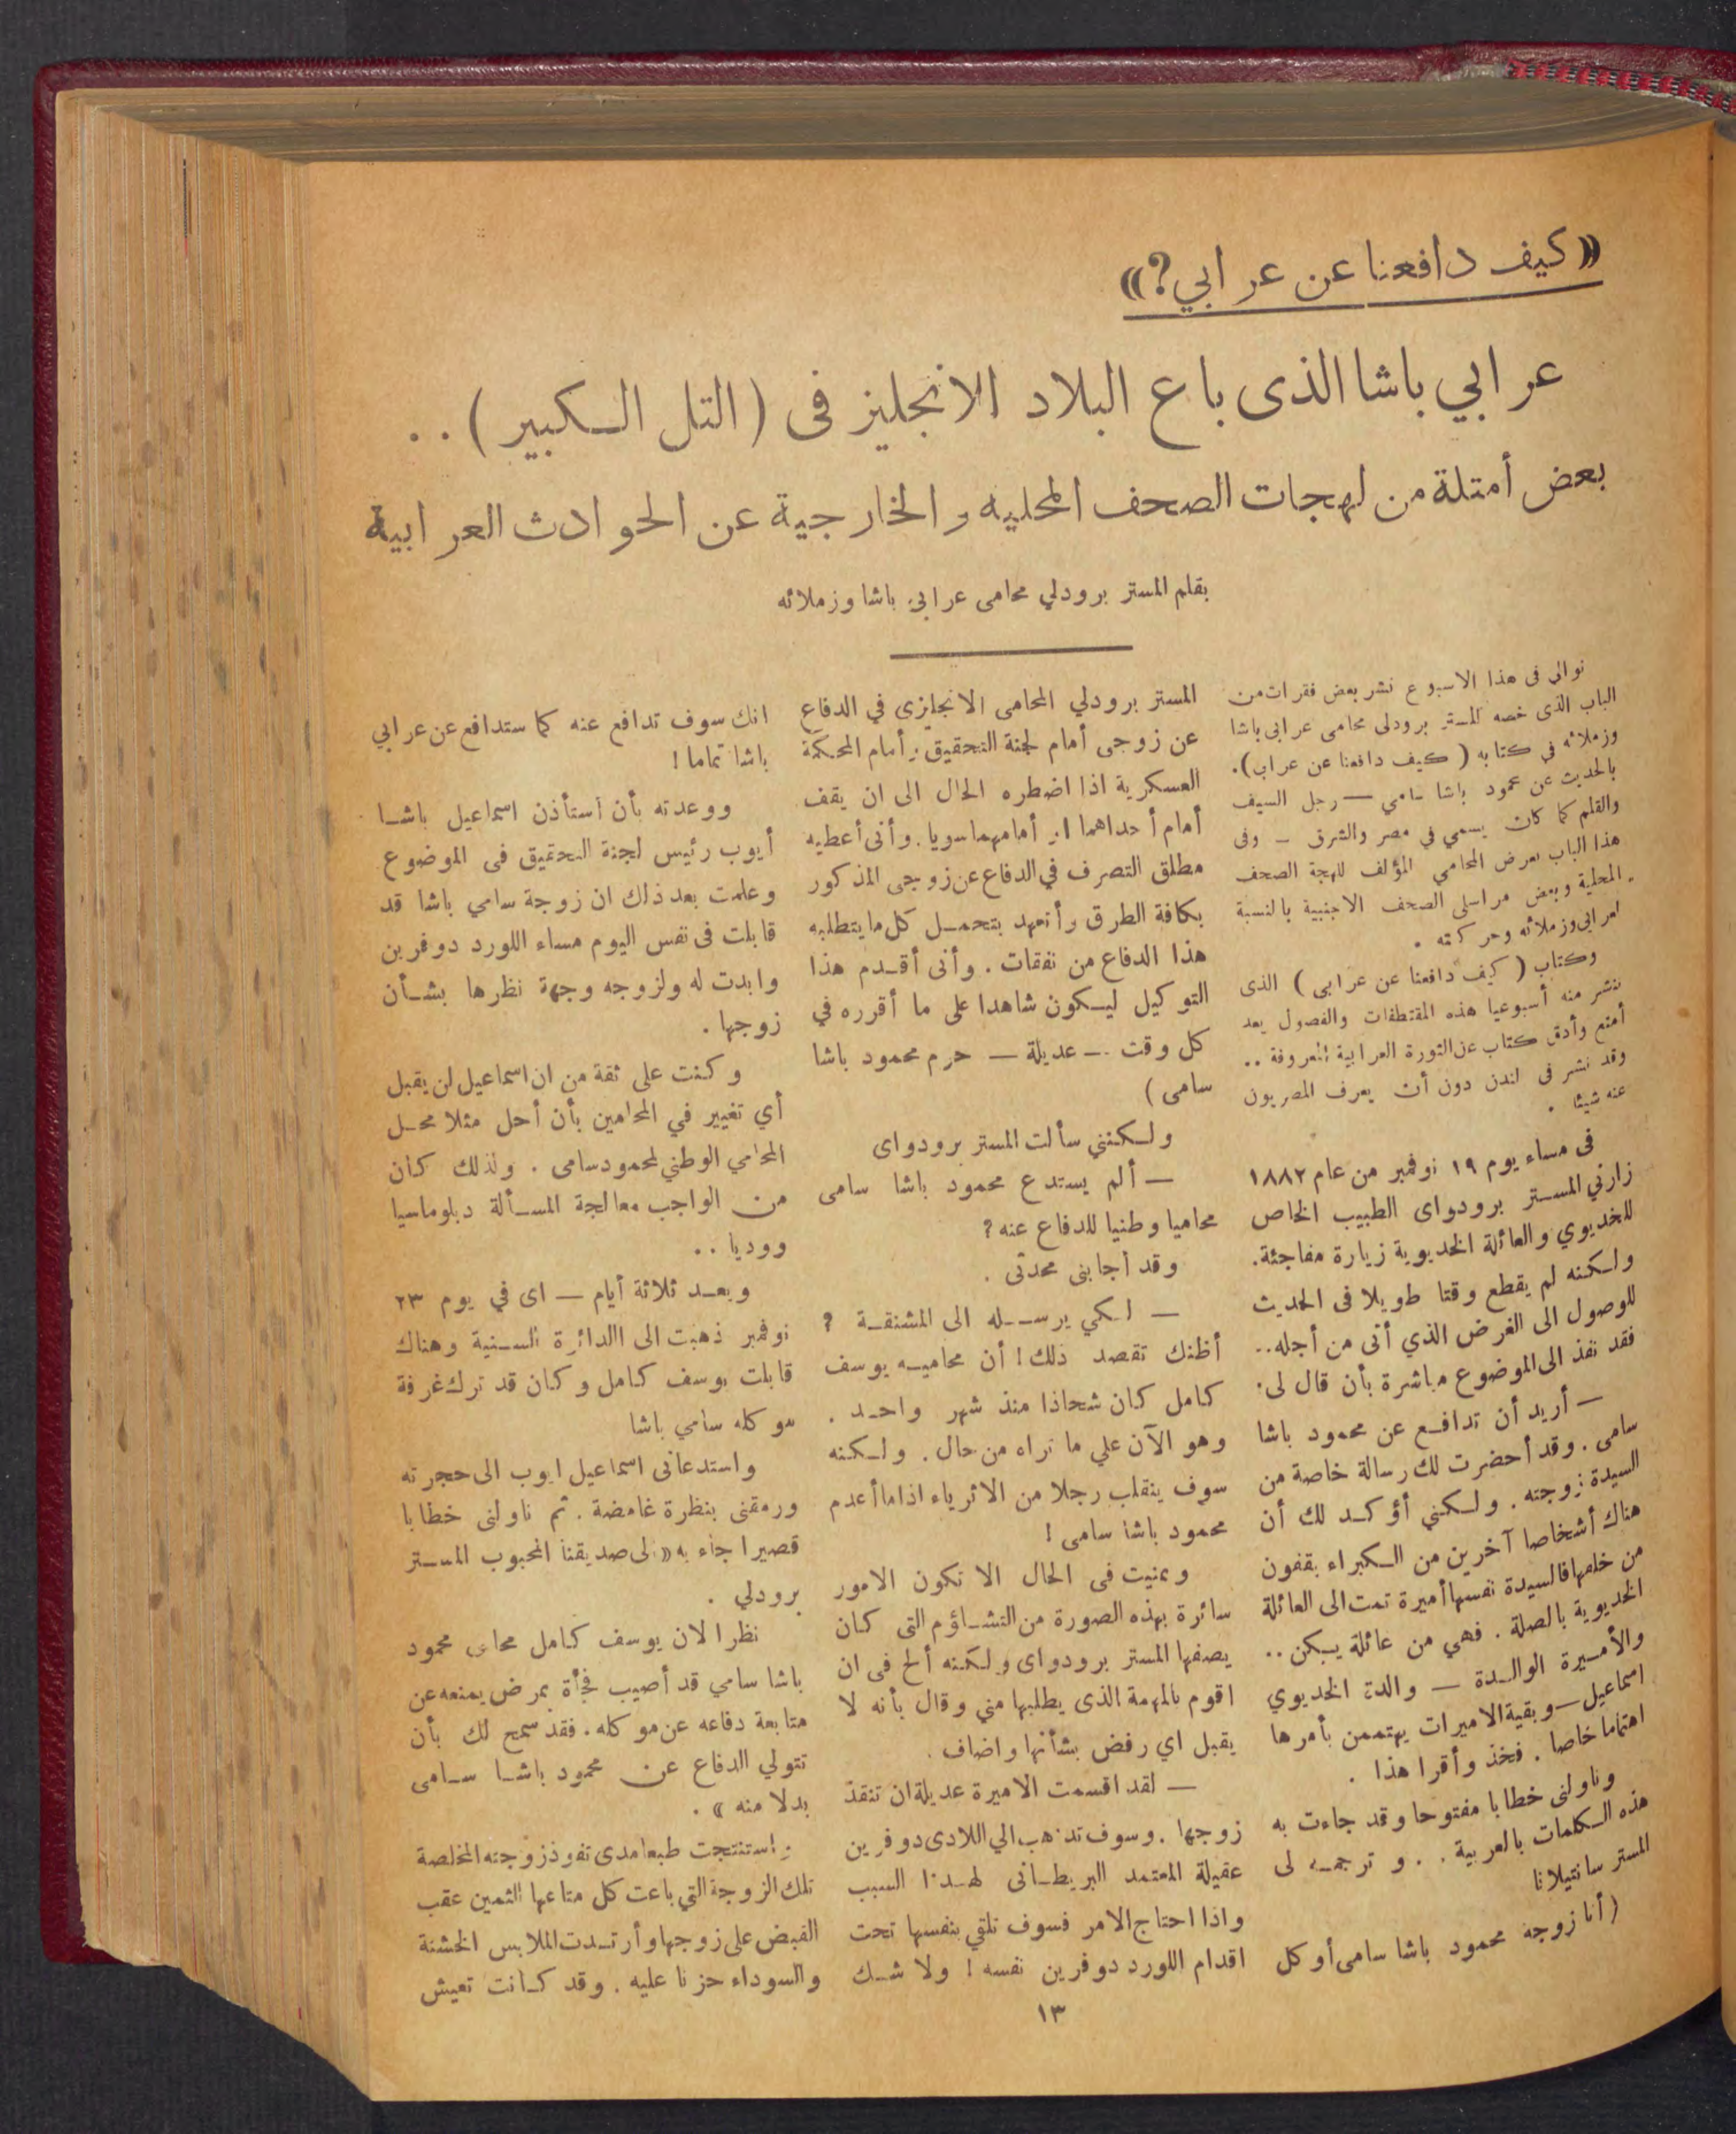 «كيف دافعنا عن عرابي؟»
عرابي باشا الذى باع البلاد الانجليز فى (التل الكبير) . .
بعض أمتلة من لهجات الصحف المحليه والخارجية عن الحوادث العرابية
بقلم المستر برودلي محامى عرابي باشا وزملائه
نوالى فى هذا الاسبوع نشر بعض فقرات من
الباب الذى خصه المستر برودلى محامى عرابى باشا
وزملائه في كتابه ( كيف دافعنا عن عرابى ) .
بالحديث عن محمود باشا سامي — رجل السيف
والقلم كما كان يسمي في مصر والشرق — وفى
هذا الباب يعرض المحامي المؤلف للهجة الصحف
المحلية وبعض مراسلى الصحف الاجنبية بالنسبة
لعرابى وزملائه وحركته .
وكتاب ( كيف دافعنا عن عرابى ) الذى
ننشر منه أسبوعيا هذه المقتطفات والفصول يعد
أمتع وأدق كتاب عن الثورة العرابية المعروفة ..
وقد نشر فى لندن دون أن يعرف المصريون
عنه شيئا .
فى مساء يوم ١٩ نوفمبر من عام ١٨٨٢
زارني المستر برودواى الطبيب الخاص
للخديوي والعائلة الخديوية زيارة مفاجئة.
ولكنه لم يقطع وقتا طويلا فى الحديث
للوصول الى الغرض الذي أتى من أجله..
فقد نفذ الى الموضوع مباشرة بأن قال لى.
— أريد أن تدافع عن محمود باشا
سامى . وقد أحضرت لك رسالة خاصة من
السيدة زوجته . ولكني أؤكد لك أن
هناك أشخاصا آخرين من الكبراء يقفون
من خلفها فالسيدة نفسها أميرة تمت الى العائلة
الخديوية بالصلة . فهي من عائلة يكن ..
والأميرة الوالدة — والدة الخديوي
اسماعيل — وبقية الاميرات يهتممن بأمرها
اهتماما خاصا . فخذ وأقرا هذا .
وناولنى خطابا مفتوحا وقد جاءت به
هذه الكلمات بالعربية . . وترجمه لى
المستر سانتيلانا
( أنا زوجة محمود باشا سامى أوكل
المستر برودلي المحامى الانجليزى في الدفاع
عن زوجى أمام لجنة التحقيق وأمام المحكمة
العسكرية اذا اضطره الحال الى ان يقف
أمام أحداهما او أمامهما سويا . وأنى أعطيه
مطلق التصرف في الدفاع عن زوجى المذكور
بكافة الطرق وأتعهد بتحمل كل ما يتطلبه
هذا الدفاع من نفقات . وأنى أقدم هذا
التوكيل ليكون شاهدا على ما أقرره في
كل وقت — عديلة — حرم محمود باشا
سامى )
ولكننى سألت المستر برودواى
— ألم يستدع محمود باشا سامى
محاميا وطنيا للدفاع عنه ؟
وقد أجابنى محدثى .
— لكي يرسله الى المشنقة ؟
أظنك تقصد ذلك ! أن محاميه يوسف
كامل كان شحاذا منذ شهر واحد .
وهو الآن علي ما نراه من حال . ولكنه
سوف ينقلب رجلا من الاثرياء اذا ما أعدم
محمود باشا سامى !
وتمنيت فى الحال الا تكون الامور
سائرة بهذه الصورة من التشاؤم التى كان
يصفها المستر برودواى ولكنه ألح فى ان
اقوم بالمهمة الذى يطلبها مني وقال بأنه لا
يقبل اي رفض بشأنها واضاف .
— لقد اقسمت الاميرة عديلة ان تنقذ
زوجها . وسوف تذهب الي اللادى دوفرين
عقيلة المعتمد البريطانى لهذا السبب
واذا احتاج الامر فسوف تلقي بنفسها تحت
اقدام اللورد دوفرين نفسه ! ولا شك
انك سوف تدافع عنه كما ستدافع عن عرابي
باشا تماما !
ووعدته بأن أستأذن اسماعيل باشا
أيوب رئيس لجنة التحقيق فى الموضوع
وعلمت بعد ذلك ان زوجة سامي باشا قد
قابلت فى نفس اليوم مساء اللورد دوفرين
وابدت له ولزوجه وجهة نظرها بشأن
زوجها .
وكنت على ثقة من ان اسماعيل لن يقبل
أي تغيير في المحامين بأن أحل مثلا محل
المحامي الوطني لمحمود سامى . ولذلك كان
من الواجب معالجة المسألة دبلوماسيا
ووديا . .
وبعد ثلاثة أيام — اى في يوم ٢٣
نوفمبر ذهبت الى االدائرة السنية وهناك
قابلت يوسف كامل وكان قد ترك غرفة
موكله سامي باشا
واستدعانى اسماعيل ايوب الى حجرته
ورمقنى بنظرة غامضة . ثم ناولنى خطابا
قصيرا جاء به «الى صديقنا المحبوب المستر
برودلي .
نظرا لان يوسف كامل محامى محمود
باشا سامي قد أصيب فجأة بمرض يمنعه عن
متابعة دفاعه عن موكله . فقد سمح لك بأن
تتولي الدفاع عن محمود باشا سامى
بدلا منه » .
واستنتجت طبعا مدى نفوذ زوجته المخلصة
تلك الزوجة التي باعت كل متاعها الثمين عقب
القبض على زوجها وأرتدت الملابس الخشنة
والسوداء حزنا عليه . وقد كانت تعيش
١٣